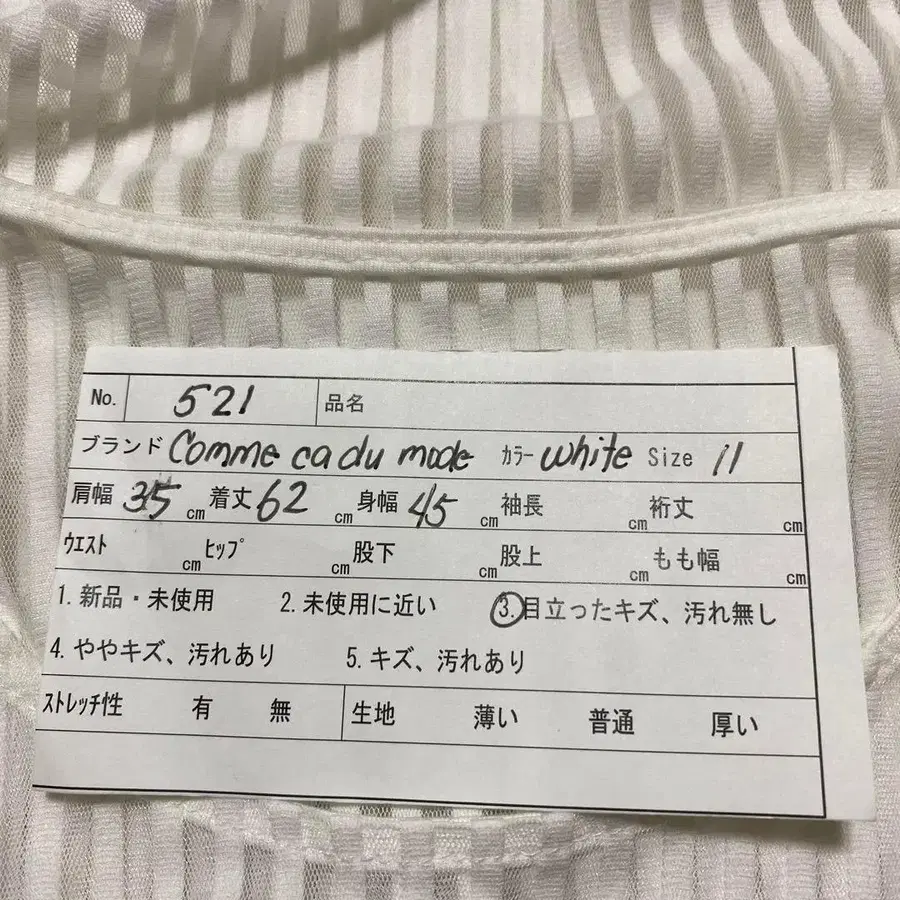 No. 521 品名
ブランド Comme ca du mode カラー white Size 11
肩幅 35 cm 着丈 62 cm 身幅 45 cm 袖長 cm 裄丈 cm
ウエスト cm ヒップ cm 股下 cm 股上 cm もも幅 cm
1. 新品・未使用 2. 未使用に近い 3. 目立ったキズ、汚れ無し
4. ややキズ、汚れあり 5. キズ、汚れあり
ストレッチ性 有 無 生地 薄い 普通 厚い